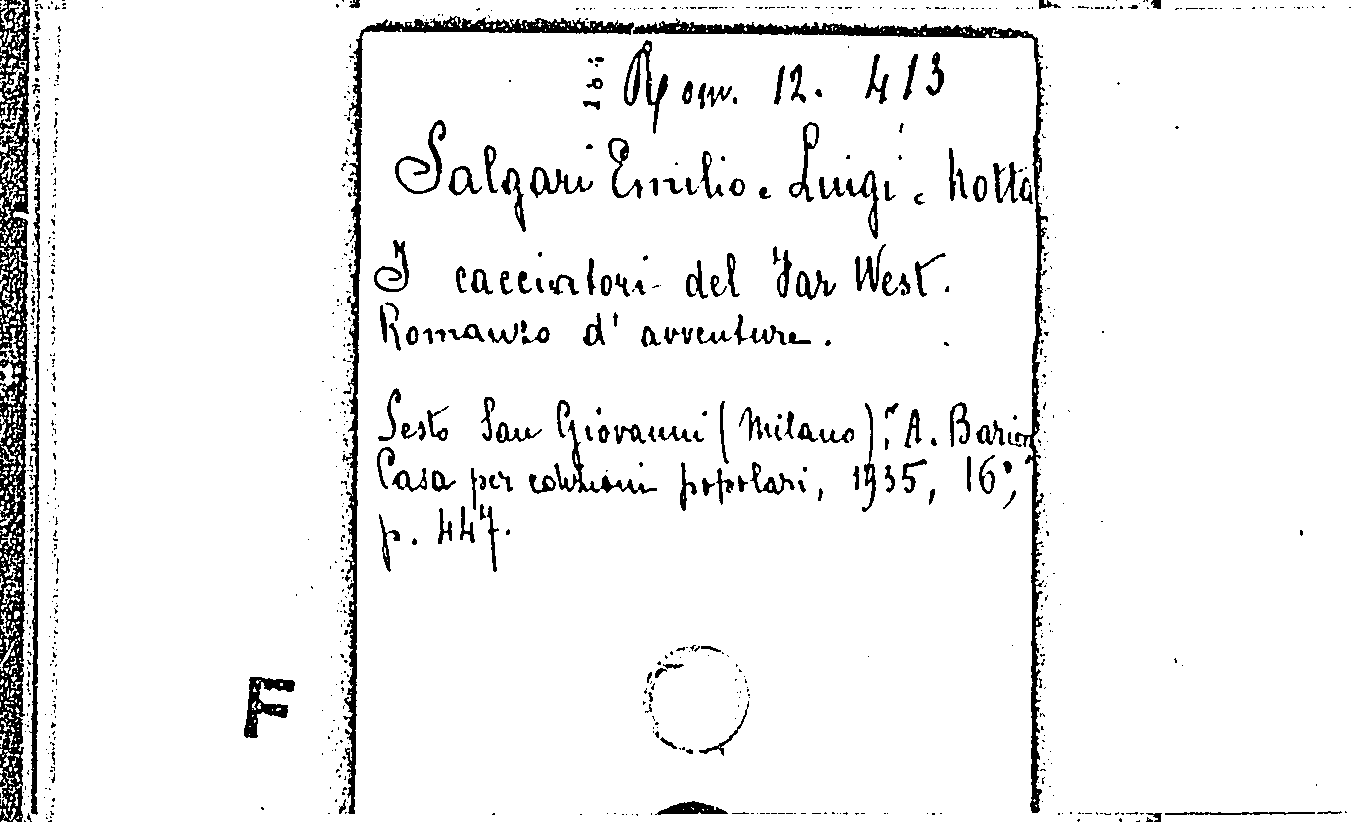 Rom. 12. 413
Salgari Emilio e Luigi e Motta
I cacciatori del Far West.
Romanzo d' avventure.
Sesto San Giovanni (Milano), "A. Barion
Casa per edizioni popolari, 1935, 16°,
p. 447.
F